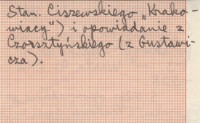 Stan. Ciszewskiego „Krako-
wiacy") i opowiadanie z
Czorsztyńskiego (z Gustawi-
cza).